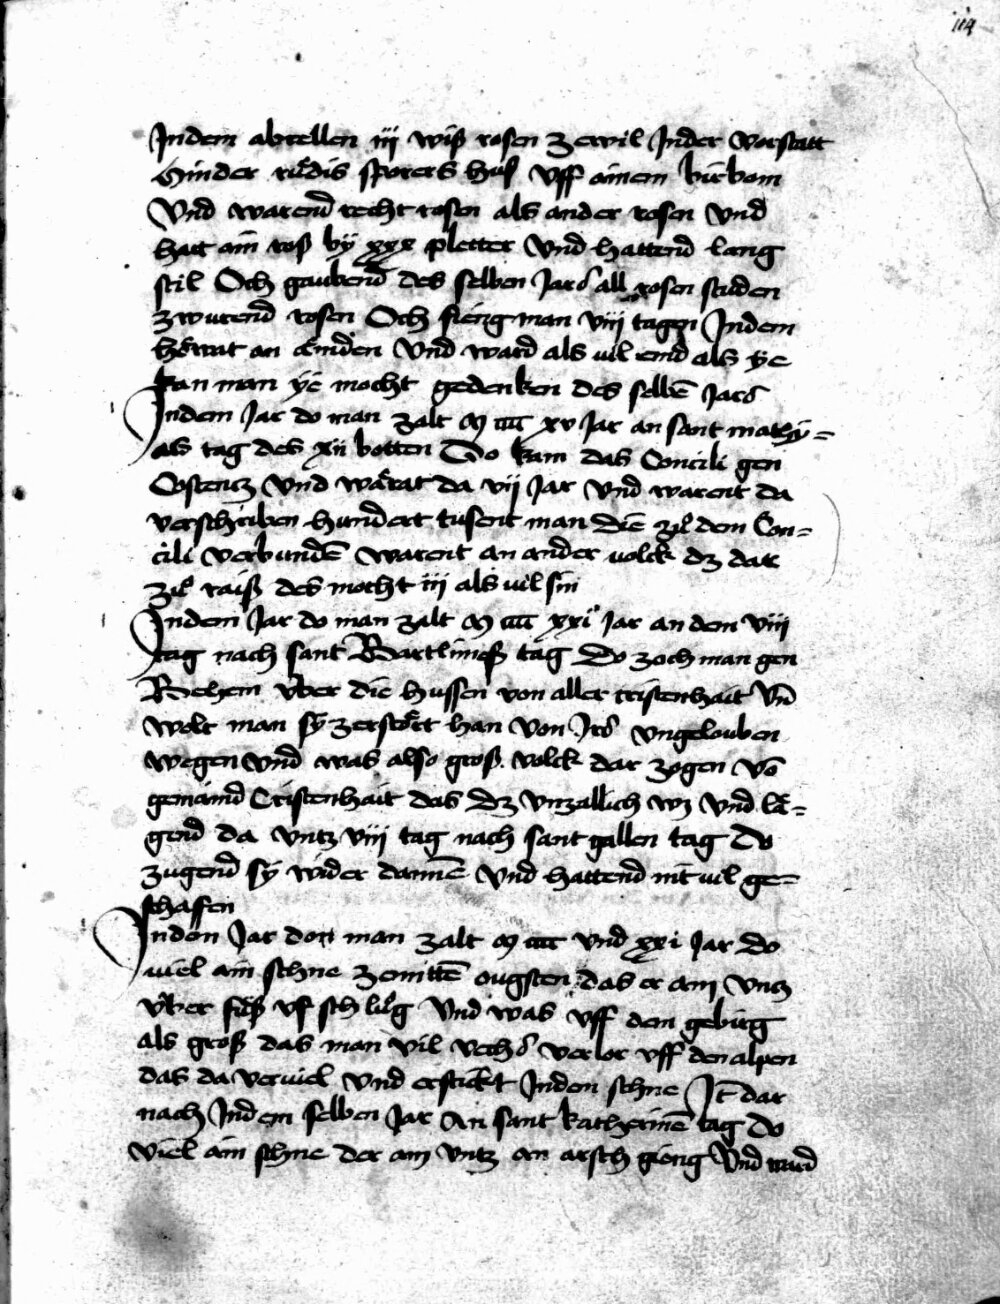 114
Jndem abrellen iij wiß rosen ze wil Jnder vorstatt
Hinder rüdis sporers huß vff ainem birbom
Vnd warend recht rosen als ander rosen vnd
hatt ain roß by xxx pletter Vnd hattend lang
stil Och gaubend des selben Jars all rosen studen
zwurend rosen Och fieng man viij tagen Jndem
höwat an änden Vnd ward als vil emd als ye
kan man ye mocht gedenken des selbē Jars
Jndem Jar do man zalt M cccc xv Jar an sant mathy=
as tag des xij botten Do kam das Concili gen
Costencz Vnd wärat da vij Jar Vnd warent da
verschriben hundert tusent man die zů dem Con=
cili verbundē warent an ander volck dz dar
zů raiß des mocht iij als vil sin
Jndem Jar do man zalt M cccc xxi Jar an dem viij
tag nach sant Bartlimeß tag Do zoch man gen
Behem v̈ber die hussen von aller cristenhait Vn̄
wolt man sy zerstört han von Jrs vngelouben
wegen Vnd was also groß volck dar zogen vō
gemaind Cristenhait das dz vnzallich wz Vnd lā=
gend da vntz viij tag nach sant gallen tag Do
zugend sy wider dannē Vnd hattend nit vil ge=
schaffen
Jnden Jar don man zalt M cccc vnd xxi Jar do
viel ain schne ze mittē ougsten das er aim vntz
v̈ber fůß vf schlůg Vnd was vff dem gebirg
als groß das man vil vechs verlor vff den alpen
das da verviel Vnd erstickt Jndem schne Jt̄ dar
nach Jndem selben Jar An sant katherinē tag do
viel ain schne der aim vntz an arsch gieng Vnd ward